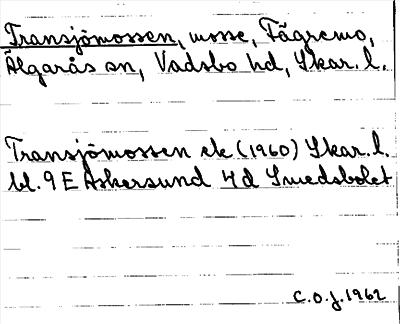 Transjömossen, mosse, Fägremo,
Älgarås sn, Vadsbo hd, Skar. l.
Transjömossen ek (1960) Skar. l.
bl. 9 E Askersund 4 d Smedsbolet
C.O.J. 1962